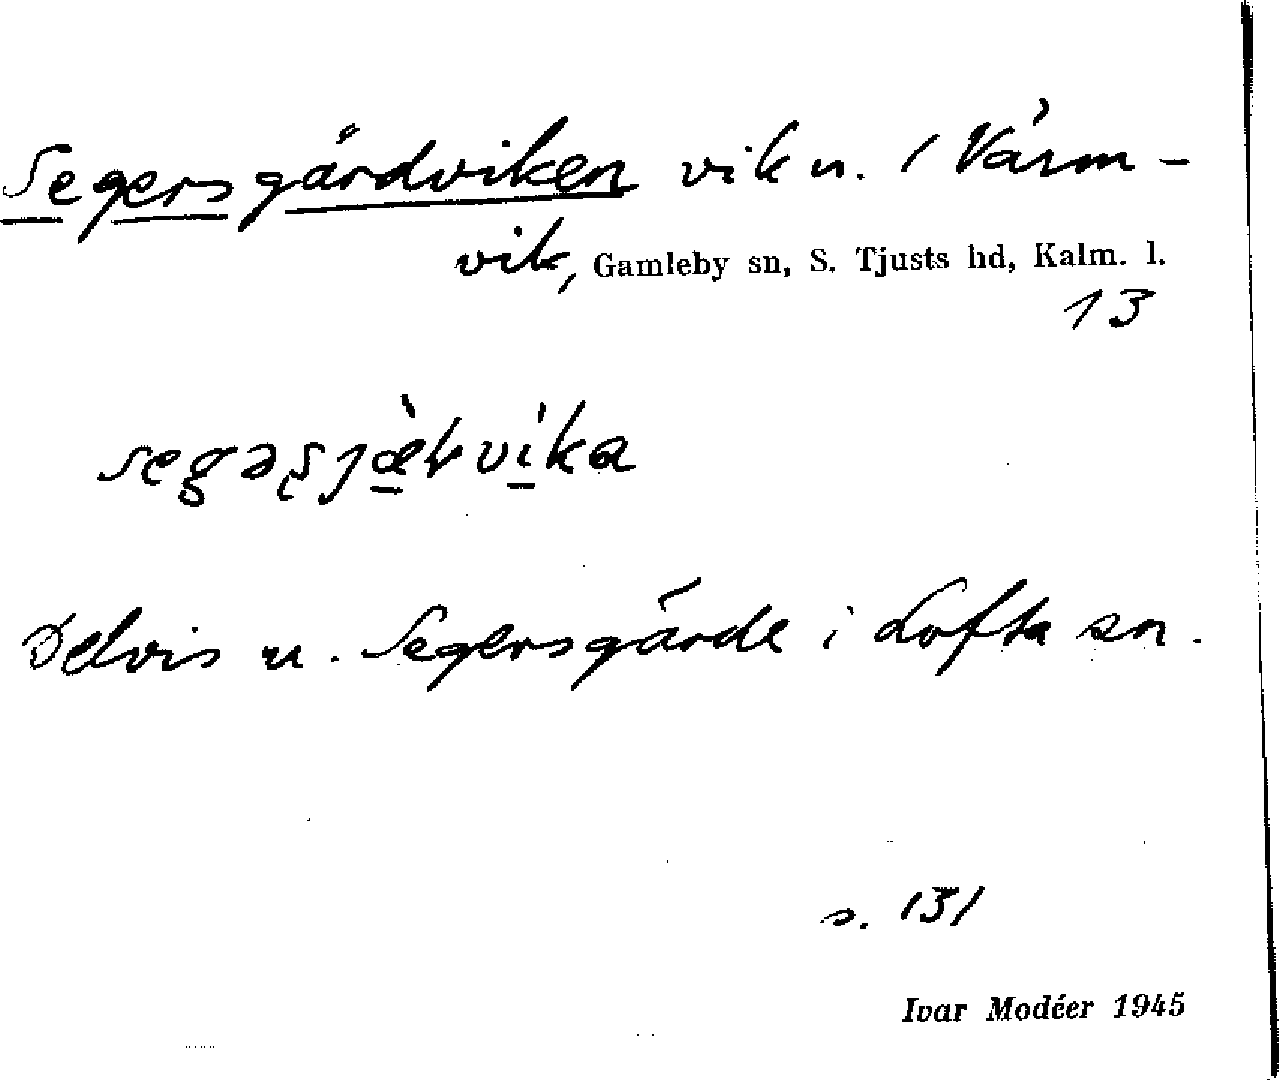 Segersgärdviken vik u. 1 Värm-
vik, Gamleby sn, S. Tjusts hd, Kalm. l.
13
Delvis u. Segersgärde i Lofta sn.
s. 131
Ivar Modéer 1945